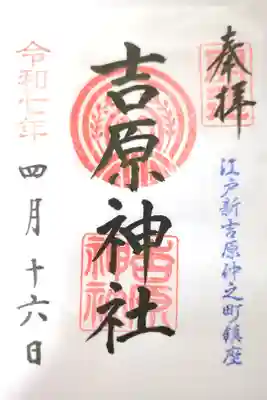 奉拝
江戸新吉原仲之町鎮座
吉原神社
令和七年
四月十六日